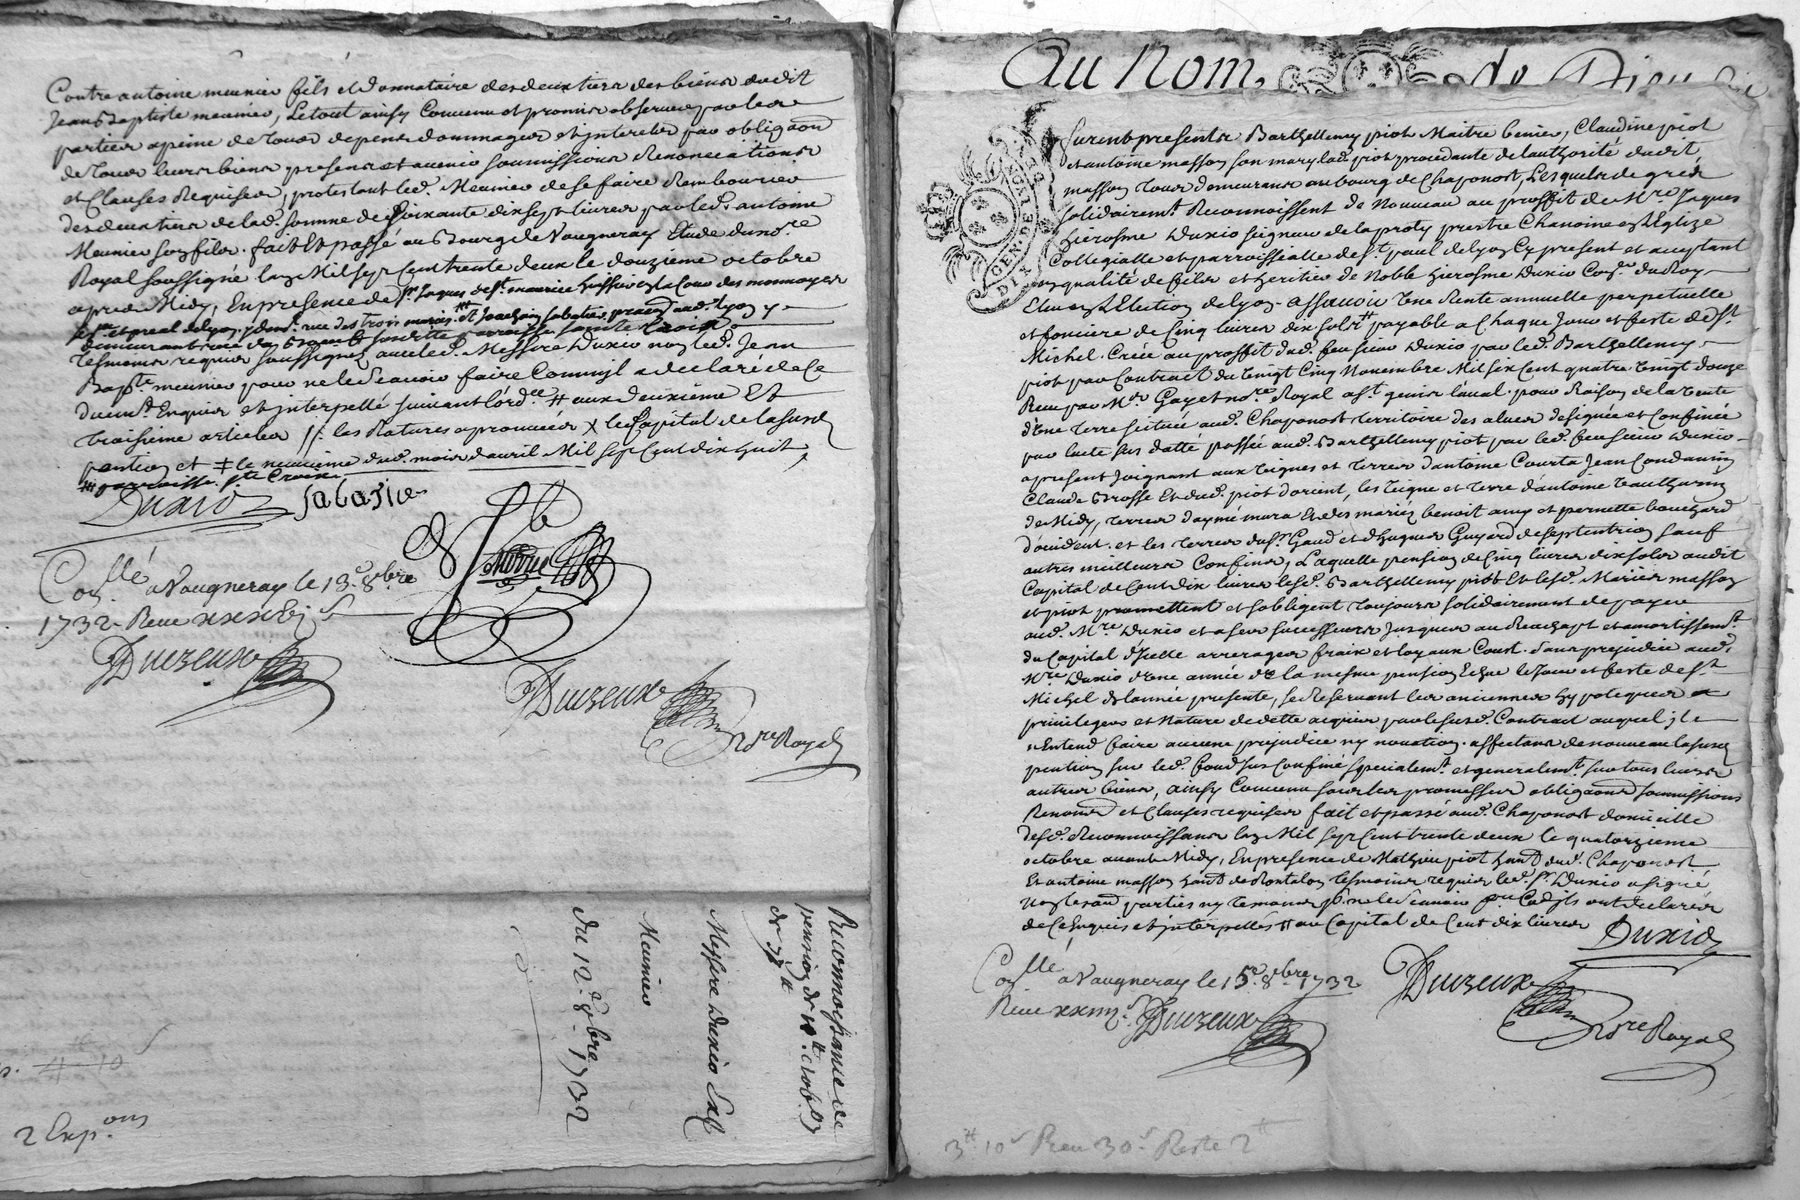 Contre antoine meunier fils et donnataire des deux tiers des biens dudit
Jean Baptiste meunier, Le tout ainsy Convenu et promis observer par les
parties a peine de tous depens dommages et interets par obligaõn
de tous leurs biens presens et avenir soumissions Renonciations
et Clauses Requises, protestant led. Meunier de se faire Rembourcer
des deux tiers de lad. somme de Soixante dix sept livres par led. antoine
Meunier son fils. fait Et passé au Bourg de Vaugneray Etude du no.re
Royal soussigné l'an Mil sept Cent trente deux le douzieme octobre
apres Midy, En presence de Sr. Jaques de St. maurice huissier en la Cour des monnoyes
rue des trois maries et Joachim sabatier
demeurant rue paroisse sainte Croix
tesmoins requis soussignez avec led. Messire Duxio non led. Jean
Bap.te meunier pour ne le sçavoir faire Comm'il a declaré de Ce
duem.t Enquis et interpellé suivant l'ord.ce # aux deuxieme Et
troisieme articles // les Ratures aprouvées x le Capital de la susd.
pention et # le neuvieme dud. mois d'avril Mil sept Cent dix huit
parroisse s.te Croix
Duxio Sabatier
Con.llé a Vaugneray le 13.e 8.bre
1732 Receu
Duczeux
Duczeux
No.re Royal
Reconnoissance de
pension de
de
Messire Duxio Ec.
Meunier
Du 12.e 8.bre 1732
4 - 10
2 Exp.ons
Au Nom de Dieu
GEN. DE LYON
DIX
Furent presents Barthellemy piot Maitre Claudine piot
et antoine masson son mary lad. piot procedante de l'authorité dudit
masson tous demeurans au bourg de Chaponost, Lesquels de gré et
solidairem.t Reconnoissent de Nouveau au proffit de M.re Jaques
hierosme Duxio seigneur de la proty prestre Chanoine en l'Eglize
Collegialle et parroissialle de S.t paul de Lyon Cy present et aceptant
en qualité de fils et heritier de Noble hierosme Duxio Con.er du Roy
Elu en L'Election de Lyon. assavoir Une Rente annuelle perpetuelle
et fonciere de Cinq livres dix sols payable a Chaque Jour et feste de S.t
Michel. Créée au proffit dud. feu sieur Duxio par led. Barthellemy
piot par Contract du Vingt Cinq Novembre Mil six Cent quatre Vingt douze
Receu par M.e Gayet no.re Royal a S.t genis laval. pour Raison de la Vente
d'Une Terre scituée aud. Chaponost territoire des designée et Confinée
par l'acte sus datté passée aud. Barthellemy piot par led. feu sieur Duxio
a present Joignant aux Vignes et terres d'antoine Courta Jean Condamin
Claude Brosse Et dud. piot d'orient, les Vigne et terre d'antoine
de Midy, terres d'aymé mura Et des mariez benoit amy et pernette bouchard
d'occident. et les terres du Sr. Gaud et d'hugues Guyard de septentrion sauf
autres meilleurs Confins, Laquelle pension de Cinq livres dix sols audit
Capital de Cent dix livres lesd. Barthellemy piot Et lesd. Mariez masson
et piot promettent et s'obligent toujours solidairement de payer
aud. M.re Duxio et a ses successeurs Jusques au Reachapt et amortissem.t
du Capital d'Icelle arrerages fraix et loyaux Coust. sans prejudice aud.
M.re Duxio d'une année de la mesme pension Echue le Jour et feste de S.t
Michel de l'année presente, se Reservant les anciennes hypoteques
privileges et Nature de dette acquis par le susd. Contract auquel Il
n'Entend faire aucune prejudice ny novation. affectans de nouveau la susd.
pention sur led. fond sus Confiné specialem.t et generalem.t sur tous leurs
autres biens, ainsy Convenu sous les promesses obligaõns soumissions
Renonces et Clauses requises fait et passé aud. Chaponost domicille
desd. Reconnoissans l'an Mil sept Cent trente deux le quatorzieme
octobre avant Midy, En presence de Mathieu piot hant dud. Chaponost
Et antoine masson hant de Rontalon tesmoins requis led. Sr. Duxio a signé
non les autres parties ny tesmoins p.r ne le sçavoir ont declarés
de Ce Enquis et interpellés // au Capital de Cent dix livres
Duxio
Con.llé a Vaugneray le 15.e 8.bre 1732
Receu
Duczeux
Duczeux
No.re Royal
3.tt 10 s Receu 30 s Reste 2.tt